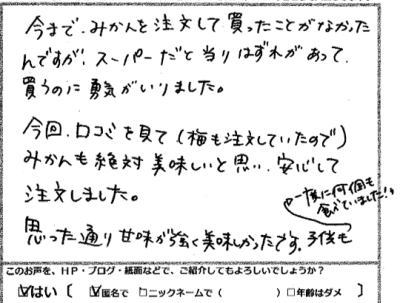 今まで、みかんを注文して買ったことがなかった
んですが、スーパーだと当りはずれがあって、
買うのに勇気がいりました。
今回、口コミを見て(梅も注文していたので)
みかんも絶対美味しいと思い、安心して
注文しました。
思った通り甘味が強く美味しかったです。子供も
一度に何個も
食べていました!!
このお声を、HP・ブログ・紙面などで、ご紹介してもよろしいでしょうか?
☑はい [ ☑匿名で □ニックネームで( ) □年齢はダメ ]